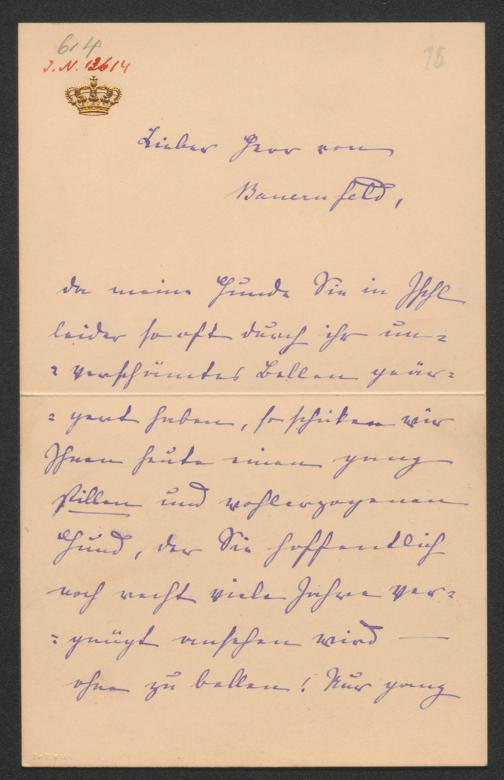 614
I.N. 12614
75
Lieber Herr von
Bauernfeld,
da meine Hunde Sie in Ischl
leider so oft durch ihr un=
=verschämtes Bellen geär=
=gert haben, so schicken wir
Ihnen heute einen ganz
stillen und wohlerzogenen
Hund, der Sie hoffentlich
noch recht viele Jahre ver=
=gnügt ansehen wird —
ohne zu bellen! Nur ganz